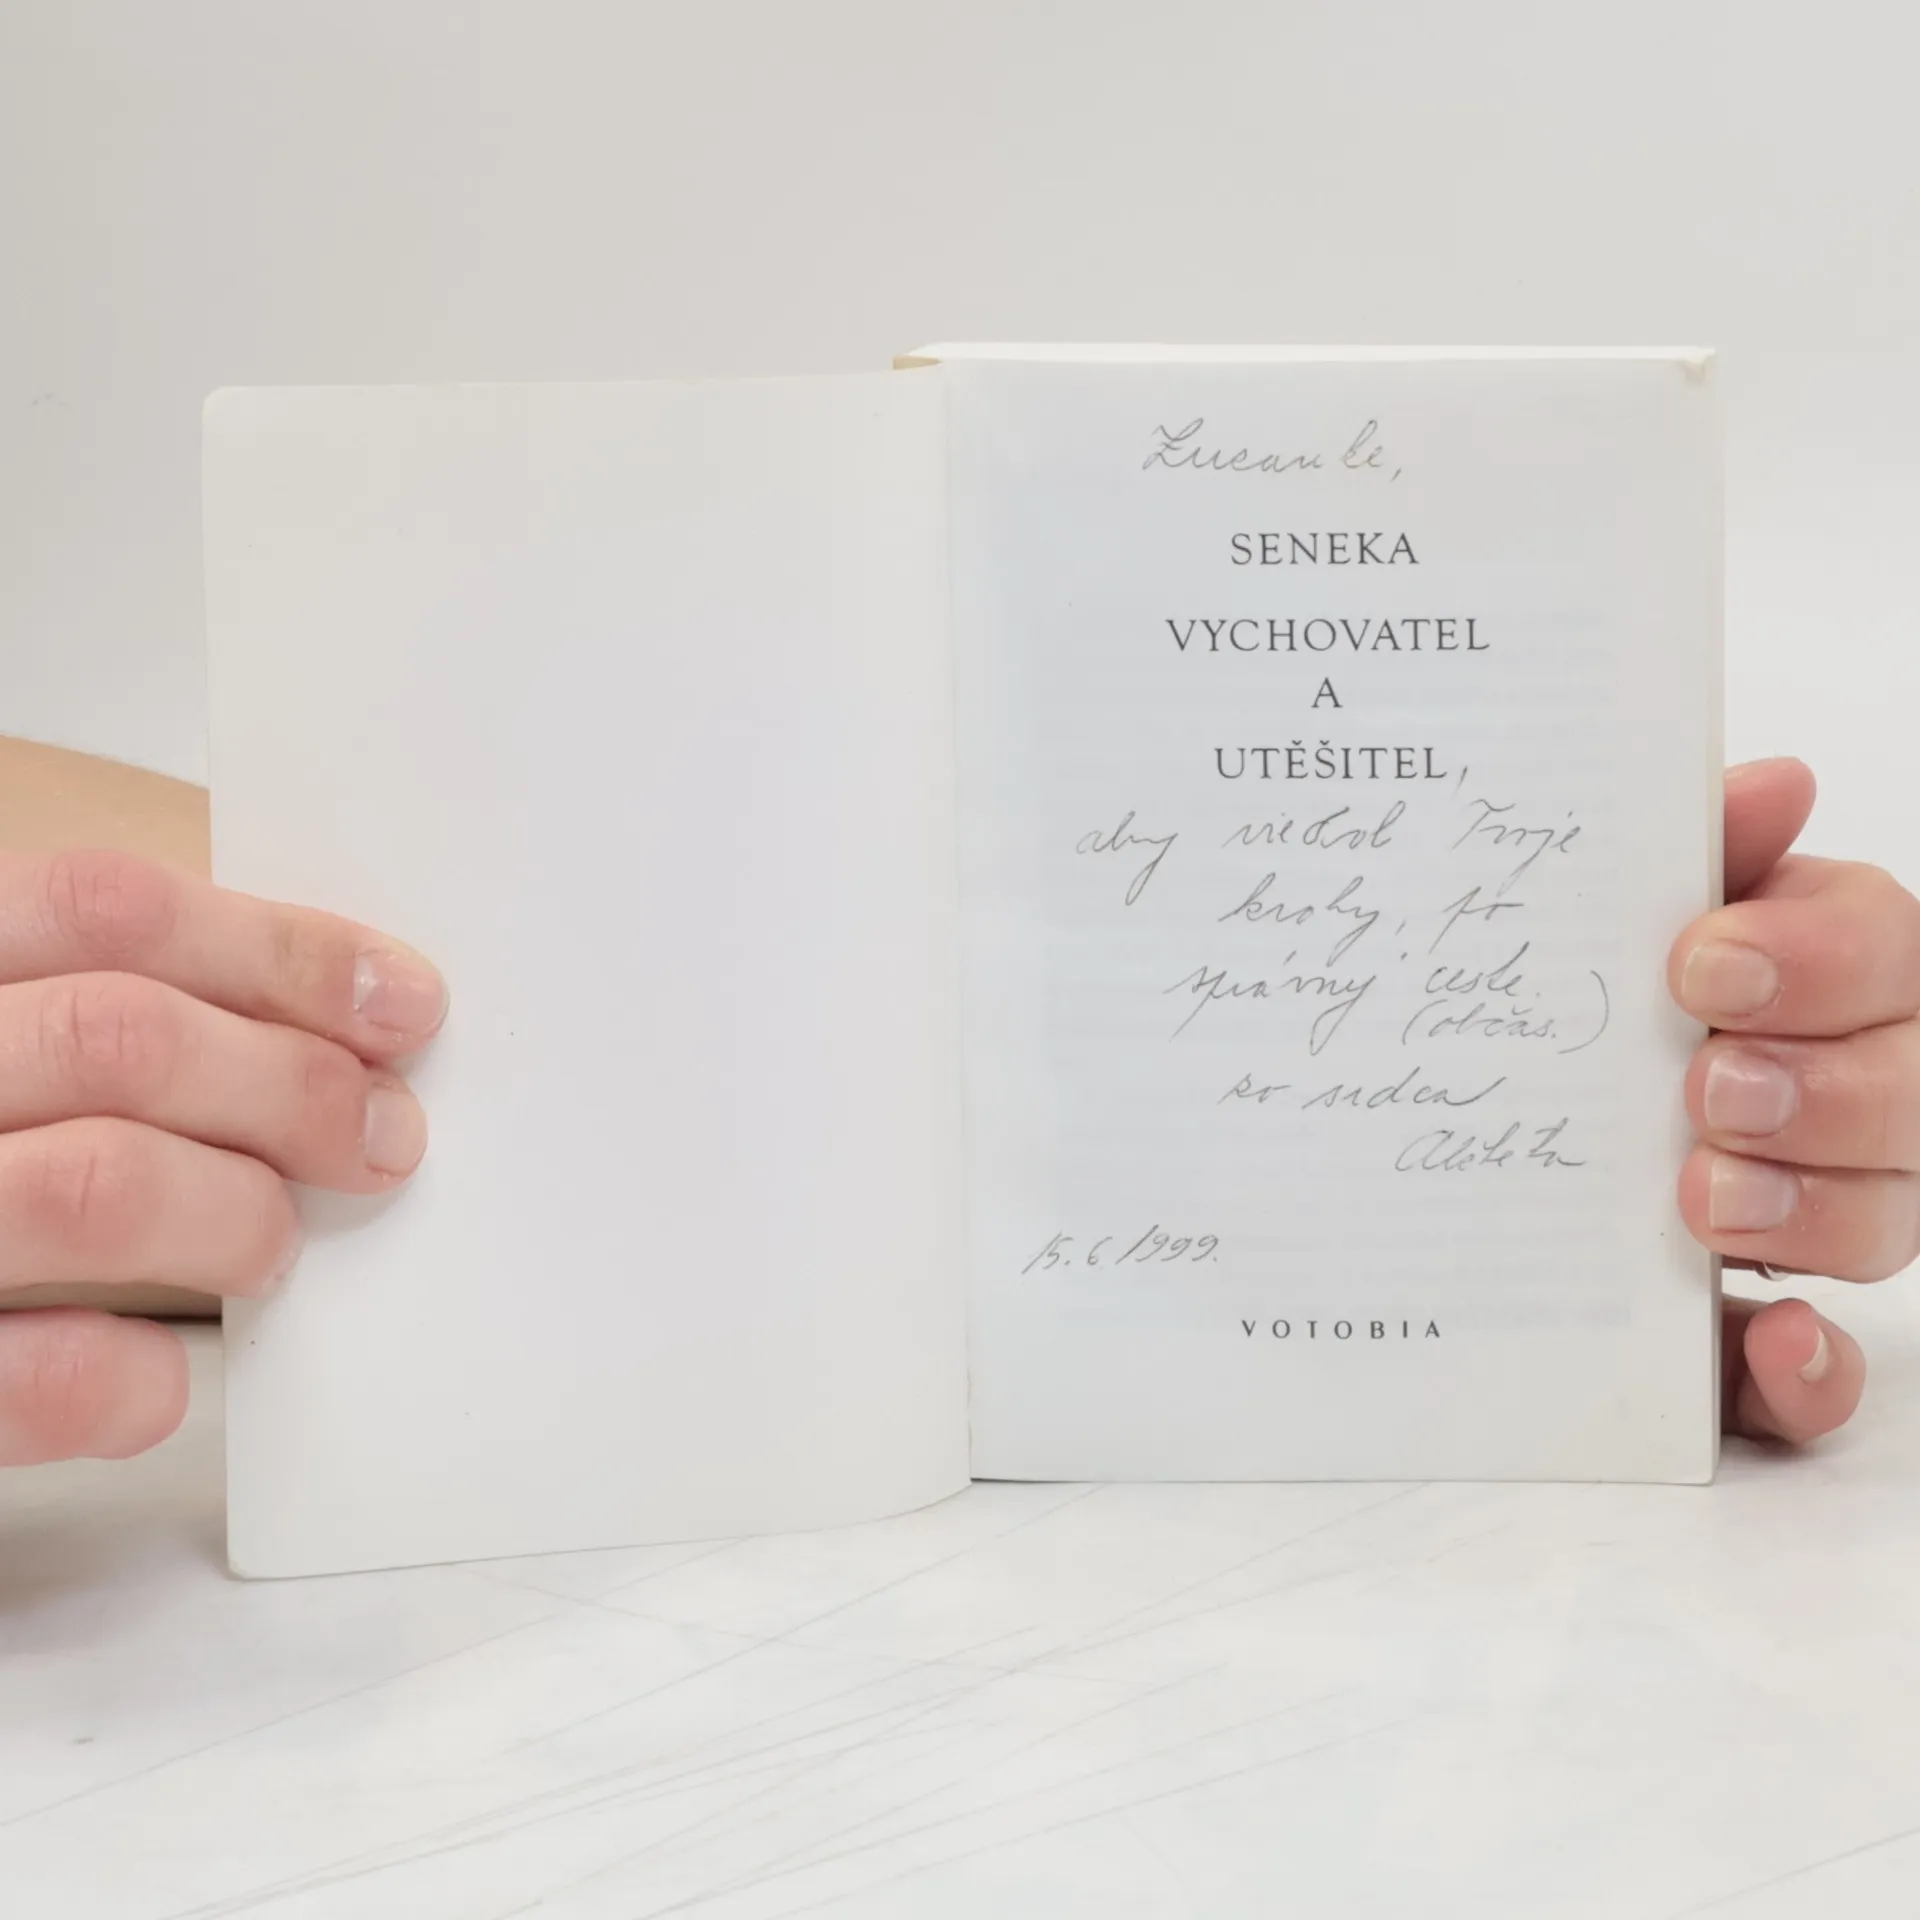 Zuzanke,
SENEKA
VYCHOVATEL
A
UTĚŠITEL,
aby viedol Tvoje
kroky, po
správnej ceste.
(občas.)
zo srdca
15.6.1999.
VOTOBIA